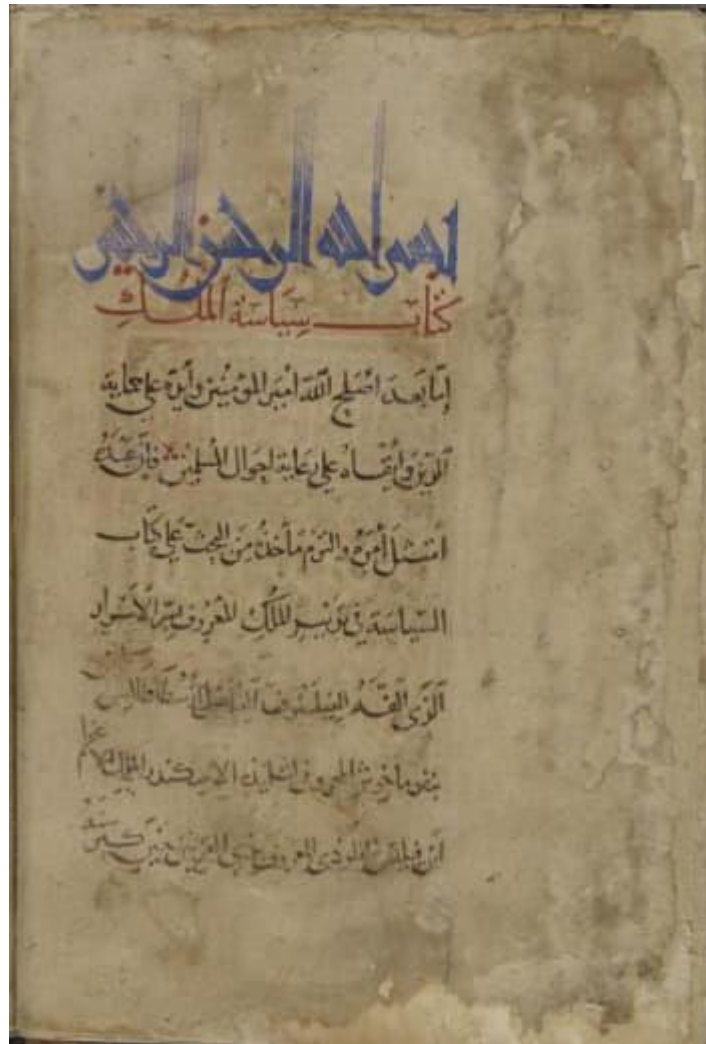 بسم الله الرحمن الرحيم
كتاب سياسة الملك
اما بعد اصلح الله امير المؤمنين وأيده على حماية
الدين وأبقاه على رعاية احوال المسلمين فان عبده
امتثل أمره والتزم مأخذه من البحث على كتاب
السياسة في تدبير الملك المعروف بسر الأسرار
الذي الفه الفيلسوف الفاضل أرسطاطاليس
بن نيقوماخوش لتلميذه الاسكندر الملك
ابن فيلبس المعروف بذي القرنين حين كبر سنه